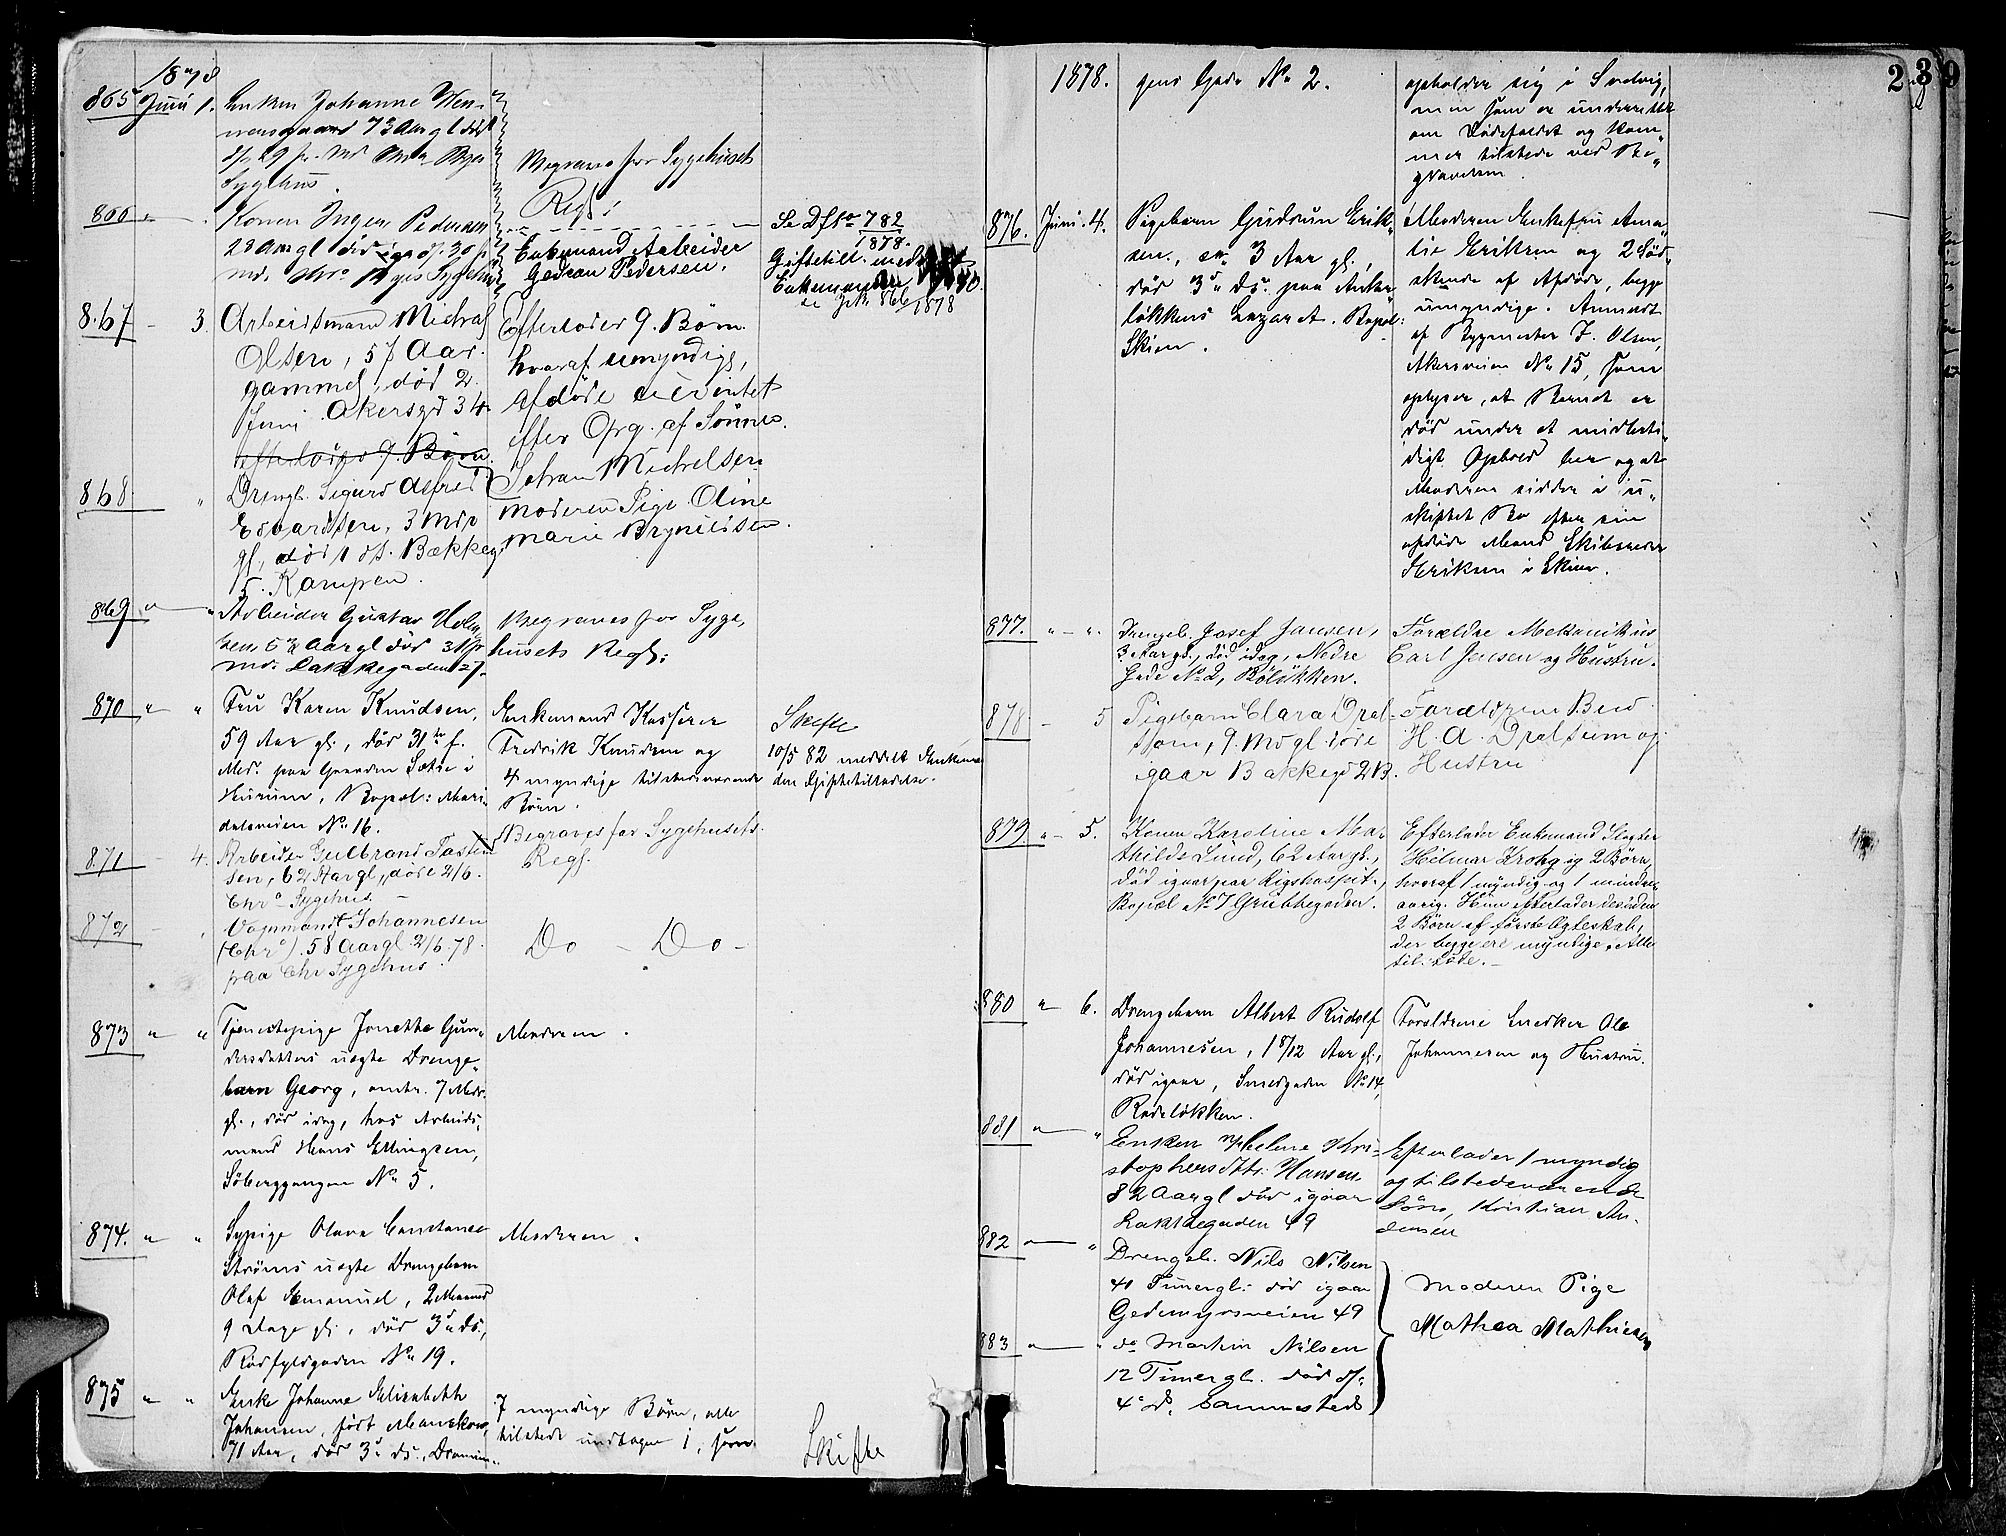 1878
865 Juni 1. Enken Johanne Wen-
nersgaard 73 Aar gl død
d/s 29 f. Md Chra Byes
Sygehus.
Begraves for Sygehusets
Regl:
866 " — " Konen Inger Pedersen
28 Aar gl død d. 30 f.
md. Chra Byes Sygehus
Enkemand Arbeider
Pedersen.
Se Df No 782
1878.
Giftetill. med
Enkemanden
se J.N. 866/1878
867 — 3. Arbeidsmand Michal
Olsen, 57 Aar
gammel, død 2.
Juni Akersgd 34
efterlader 9. Børn
Efterlader 9. Børn
hvoraf umyndige,
afdøde eiet intet
efter Opg. af Sønnen
Johan Michelsen
868. " Drengb. Sigurd Alfred
Edvardsen, 3 Mdr
gl., død 1 ds. Bækkeg.
15. Kampen.
Moderen Pige Oline
Marie Brynildsen.
869 " — " Arbeider Gustav Holm-
sen 53 Aar gl død 31 f
md. Lakkegaden 27.
Begraves for Syge-
husets Regl:
870 " " " Fru Karen Knudsen,
59 Aar gl., død 31te f.
Md. paa Gaarden Sætre i
Hurum, Bopæl: Mari-
dalsveien No 16.
Enkemand Kasserer
Fredrik Knudsen og
4 myndige tilstedeværende
Børn.
Skifte
10/5 82 meddelt Enkeman-
den Giftetilladelse.
871 — 4. Arbeider Gulbrand Torsten-
sen, 62 Aar gl, døde 2/6.
Chra Sygehus
Begraves for Sygehusets
Regl.
872 — " Vognmand Johannesen
(Chra). 58 Aar gl 2/6 78.
paa Chr Sygehus.
Do — Do —
873 " " Tjenestepige Jonette Gun-
dersdatters uægte Drenge-
barn Georg, omtr. 7 Mdr.
gl., død idag, hos Arbeids-
mand Hans Ellingsen,
Søberggangen No 5.
Moderen.
874. " " Sypige Olava Constance
Strøms uægte Drengebarn
Olaf Emanuel, 2 Maaned
9 Dage gl., død 3die ds.,
Rødfyldgaden No 19.
Moderen.
875 " " Enke Johanne Elisabeth
Johansen, født Manskow,
71 Aar, død 3d ds., Drammen-
7 myndige Børn, alle
tilstede undtagen 1, som
Skifte
239
1878. gens Gade No 2.
opholder sig i Sandvig,
men som er underrettet
om Dødsfaldet og kom-
mer tilstede ved Be-
gravelsen.
876. Juni 4. Pigebarn Gudrun Erik-
sen, ca. 3 Aar gl.,
død 3d ds. paa Anker-
løkkens Lazaret. Bopæl:
Skien.
Moderen Enkefru Ama-
lie Eriksen og 2 Sød-
skende af Afdøde, begge
umyndige. Anmeldt
af Bygmester J. Olsen,
Akersveien No 15, som
oplyser, at Barnet er
død under et midlerti-
digt Ophold her og at
Moderen sidder i u-
skiftet Bo efter sin
afdøde Mand Skibsreder
Eriksen i Skien.
877. " — " Drengeb. Josef Jansen,
3 Aar gl., død idag, Nedre
Gade No 2, Bøløkken.
Forældre Mekanikus
Carl Jensen og Hustru.
878 — 5 Pigebarn Clara Dral-
som, 9. Md gl. døde
igaar Bakkegd 2B.
Forældrene Bud
H. A. Dralsum og
Hustru
879. " — 5. Konen Karoline Ma-
thilde Lund, 62 Aar gl.,
død igaar paa Rigshospit.,
Bopæl No 7 Grubbegaden.
Efterlader Enkemand Slagter
Hilmar Krohg og 2 Børn,
hvoraf 1 myndig og 1 mindre-
aarig. Hun efterlader desuden
2 Børn af første Ægteskab,
der begge ere myndige. Alle
tilstede. —
880 " 6. Drengebarn Albert Rudolf
Johannesen, 1 8/12 Aar gl.,
død igaar, Smedgaden No 14,
Rodeløkken.
Forældrene Snedker Ole
Johannesen og Hustru.
881 " — " Enken Helene Kri-
stophersdtr. Hansen
82 Aar gl død igaar
Lakkegaden 49
Efterlader 1 myndig
og tilstedeværende
Søn, Kristian An-
densen
882 " — " Drengeb. Nils Nilsen
41 Timer gl. død igaar
Gedemyrsveien 49
Moderen Pige
Mathea Mathiesen
883 " — " do Martin Nilsen
12 Timer gl. død d/s
4de d. Sammesteds